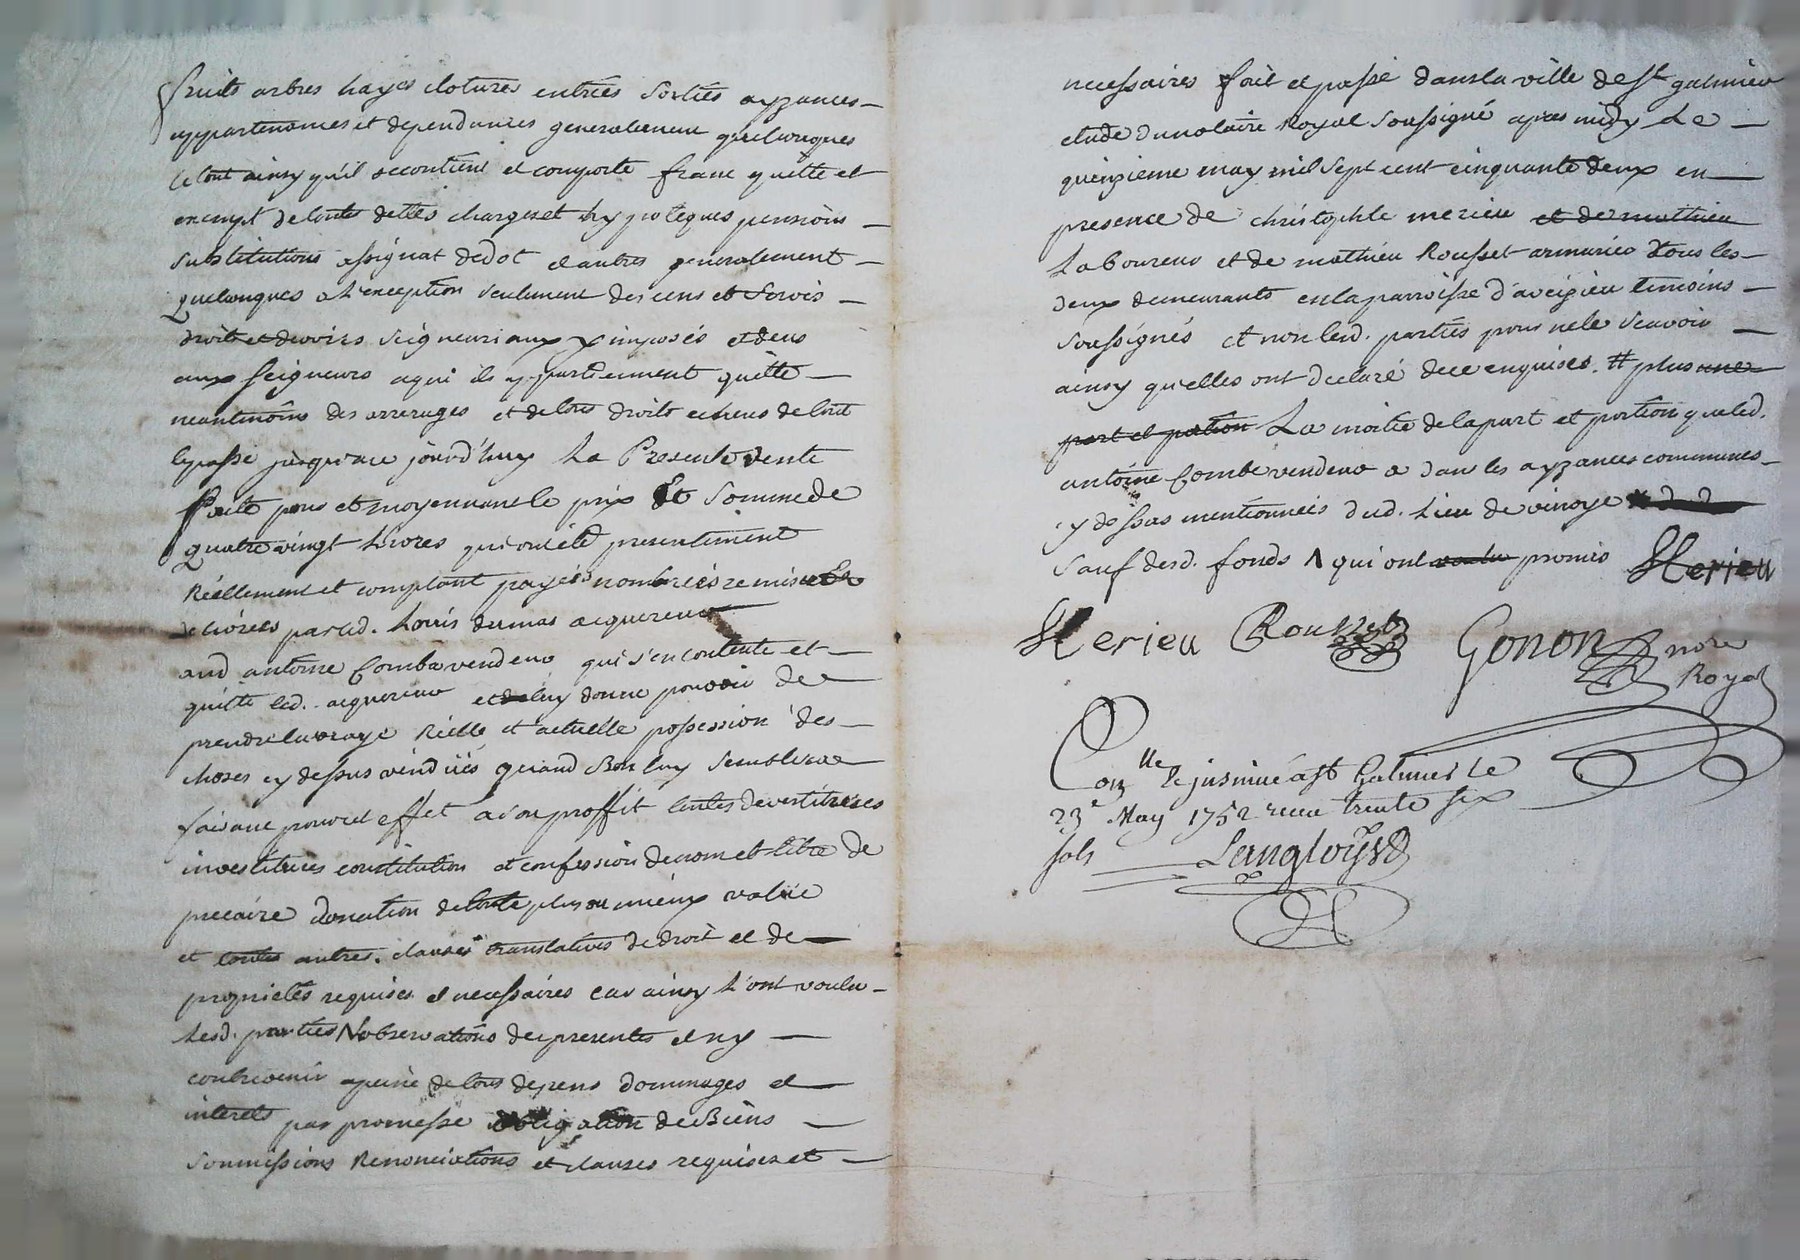 fruits arbres hayes clotures entrées sortiés ayzances
appartenances et dependances generalement quelconques
le tout ainsy qu'il se contient et comporte franc quitte et
exempt de toutes dettes charges et hypoteques pensions
substitutions assignat de dot et autres generalement
quelconques a l'exception seulement des cens et servis
droits et devoirs seigneuriaux y imposés et deus
aux seigneurs a qui ils appartiennent quitte
neantmoins des arrerages et de tous droits echeus de tout
le passé jusqu'a ce jourd'huy La Presente vente
faite pour et moyennant le prix et somme de
quatre vingt livres qui ont été presentement
Réellement et comptant payés nombrées remises et
delivrées par led. Louis dumas acquereur
aud antoine Combe vendeur qui s'en contente et
quitte led. acquereur et luy donne pouvoir de
prendre la vraye Réelle et actuelle possession des
choses cy dessus venduës quand Bon luy semblera
faisant pour cet effet a son proffit toutes devestitures
investitures constitution et confession de nom et titre de
precaire Donation de toute plus ou mieux value
et toutes autres clauses translatives de droit et de
proprietés requises et necessaires car ainsy l'ont voulu
Lesd. parties observations des presentes et n'y
contrevenir a peine de tous depens dommages et
interets par promesse obligation de Biens
soumissions Renonciations et clauses requises et
necessaires fait et passé dans la ville de st galmier
etude du notaire Royal soussigné apres midy Le
quinzieme may mil sept cent cinquante deux en
presence de christophle merieu et de mathieu
Laboureur et de mathieu Rousset armurier tous les
deux demeurants en la parroisse d'aveizieu temoins
soussignés et non lesd. parties pour ne le scavoir
ainsy qu'elles ont declaré de ce enquises. # plus une
part et portion La moitié de la part et portion que led.
antoine Combe vendeur a dans les ayzances communes
cy dessus mentionnées dud. Lieu de vinoye
sauf desd. fonds Λ qui ont voulu promis Merieu
Merieu Rousset Gonon nore
Royal
Con lle & insinué a st Galmier le
23e May 1752 receu trente six
sols Langloys